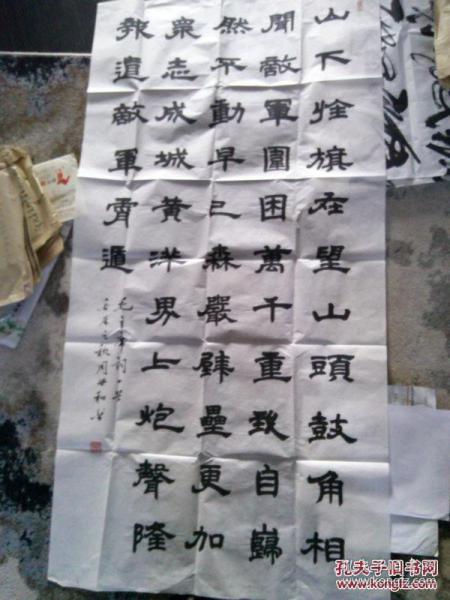 山下旌旗在望山頭鼓角相
聞敵軍圍困萬千重我自巋
然不動早已森嚴壁壘更加
衆志成城黃洋界上炮聲隆
報道敵軍霄遁
毛主席詞一首
之秋周
孔夫子旧书网
www.kongfz.com